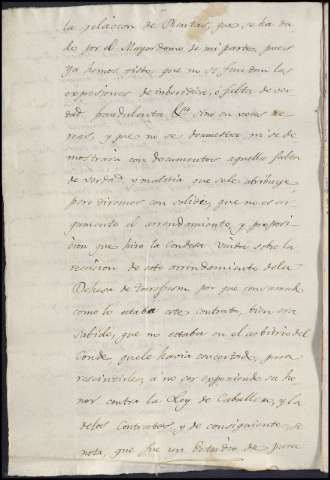 la relacion de Plantas, que se ha da
do por el Mayordomo de mi parte, pues
ya hemos visto, que no se fundan las
expresiones de inberidica, ó falta de ver
dad, fraudulenta &ª sino en voces ae
reas, y que no se demuestra, ni se de
mostrará con documentos aquella falta
de verdad, y malicia que se le atribuye
pero diremos con solidez, que no es ar
gumento el arrendamiento, y proposi
cion que hizo la Condesa Viuda sobre la
recision de este arrendamiento de la
Dehesa de por que consumado
como lo estaba este contrato, bien era
sabido, que no estaba en el arbitrio del
Conde que le havia concertado, para
rescindirle, á no ser opponiendo su ho
nor contra la Ley de Caballero, y la
de los Contratos, y de consiguiente, se
nota, que fue un Estudio de para